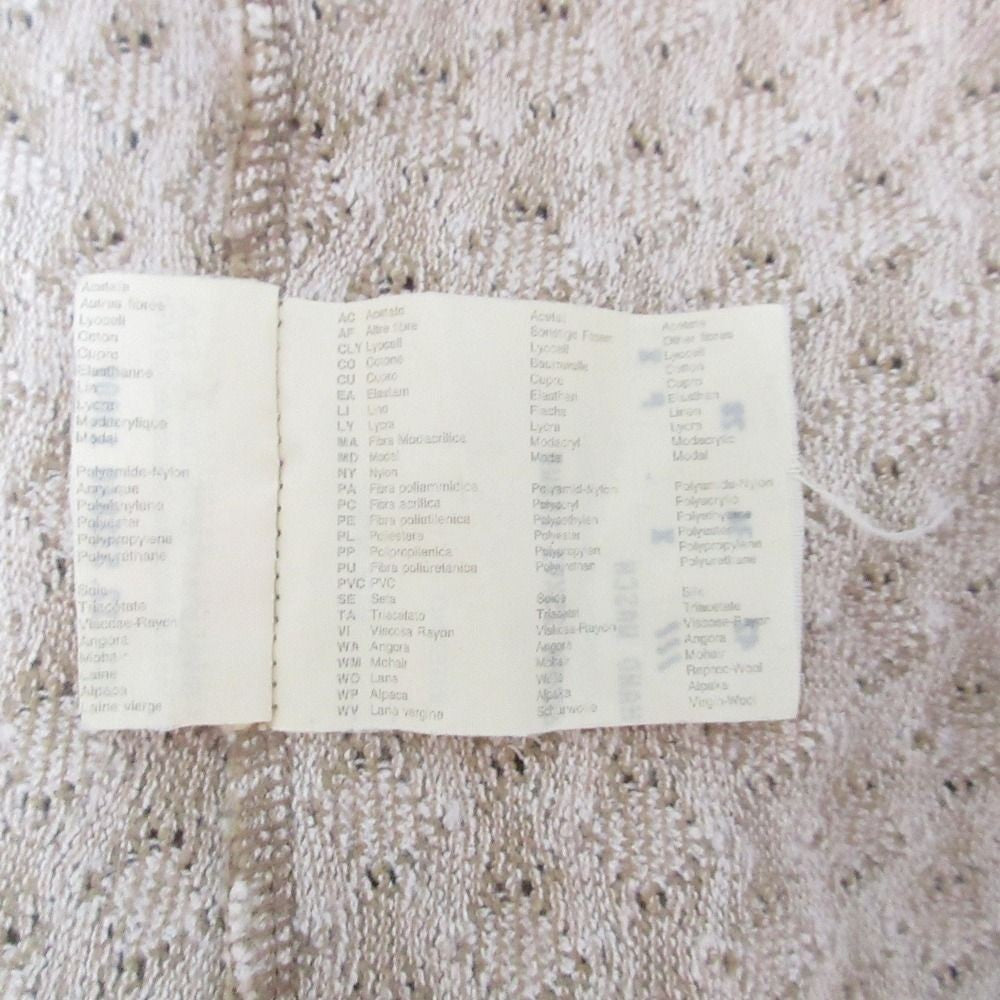 Acetate
Autres fibres
Lyocell
Coton
Cupro
Elasthanne
Lin
Lycra
Modacrylique
Modal
Polyamide-Nylon
Acrylique
Polyethylene
Polyester
Polypropylene
Polyurethane
Soie
Triacetate
Viscose-Rayon
Angora
Mohair
Laine
Alpaca
Laine vierge
AC Acetato
AF Altre fibre
CLY Lyocell
CO Cotone
CU Cupro
EA Elastam
LI Lino
LY Lycra
MA Fibra Modacrilica
MD Modal
NY Nylon
PA Fibra poliammidica
PC Fibra acrilica
PE Fibra polietilenica
PL Poliestere
PP Polipropilenica
PU Fibra poliuretanica
PVC PVC
SE Seta
TA Triacetato
VI Viscosa Rayon
WA Angora
WM Mohair
WO Lana
WP Alpaca
WV Lana vergine
Acetat
Sonstige Fasern
Lyocell
Baumwolle
Cupro
Elasthan
Flachs
Lycra
Modacryl
Modal
Polyamid-Nylon
Polyacryl
Polyaethylen
Polyester
Polypropylen
Polyurethan
Seide
Triacetat
Viskose-Rayon
Angora
Mohair
Wolle
Alpaka
Schurwolle
Acetate
Other fibres
Lyocell
Cotton
Cupro
Elasthan
Linen
Lycra
Modacrylic
Modal
Polyamide-Nylon
Polyacrylic
Polyethylene
Polyester
Polypropylene
Polyurethane
Silk
Triacetate
Viscose-Rayon
Angora
Mohair
Reproc-Wool
Alpaka
Virgin-Wool